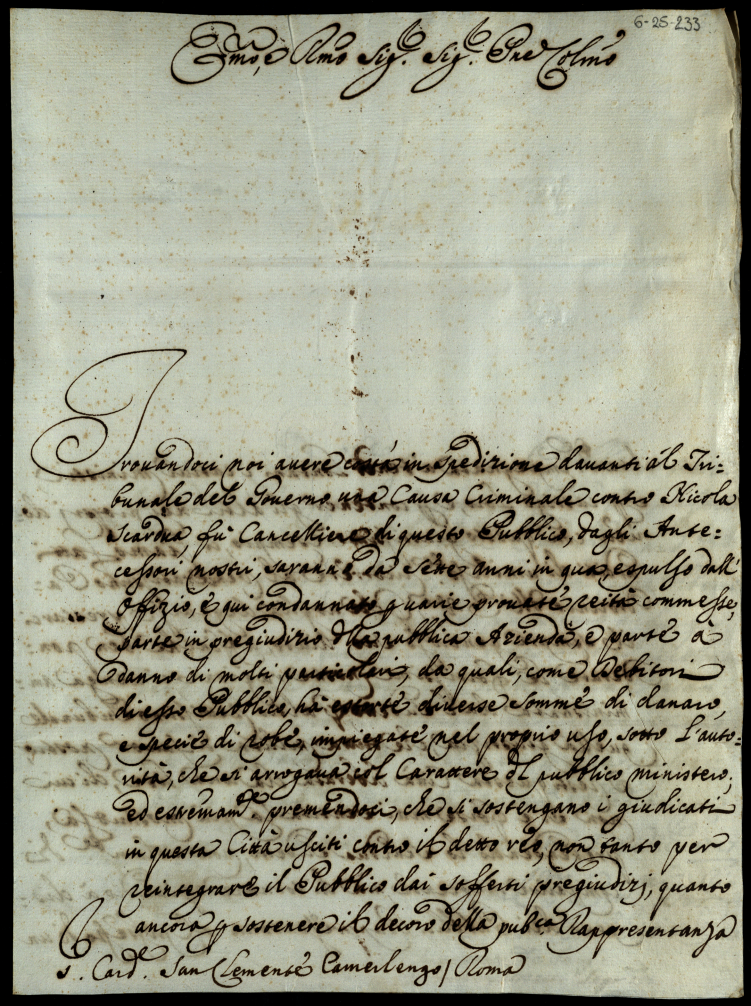 6-25-233
Emo, e Rmo Sig.r Sig.r Pne Colmo
Trouandoci noi auere costà in spedizione dauanti al Tri=
bunale del Gouerno una Causa Criminale contro Nicola
Scardua, fù Cancelliere di questo Pubblico, dagli Ante=
cessori nostri, saranno da sette anni in qua, espulso dall'
Offizio, e qui condannato p uarie prouate reità commesse,
parte in pregiudizio dlla pubblica Azienda, e parte à
danno di molti particolari, da quali, come Debitori
di esso Pubblico, hà estorte diuerse somme di danaro,
e specie di robe, impiegate nel proprio uso, sotto l'auto=
rità, che si arrogaua col Carattere dl pubblico ministero;
ed estremam.te premendoci, che si sostengano i giudicati
in questa Città usciti contro il detto reo, non tanto per
reintegrare il Pubblico dai sofferti pregiudizj, quanto
ancora p sostenere il decoro della pub.ca Rappresentanza
S.r Card.le San Clemente Camerlengo / Roma